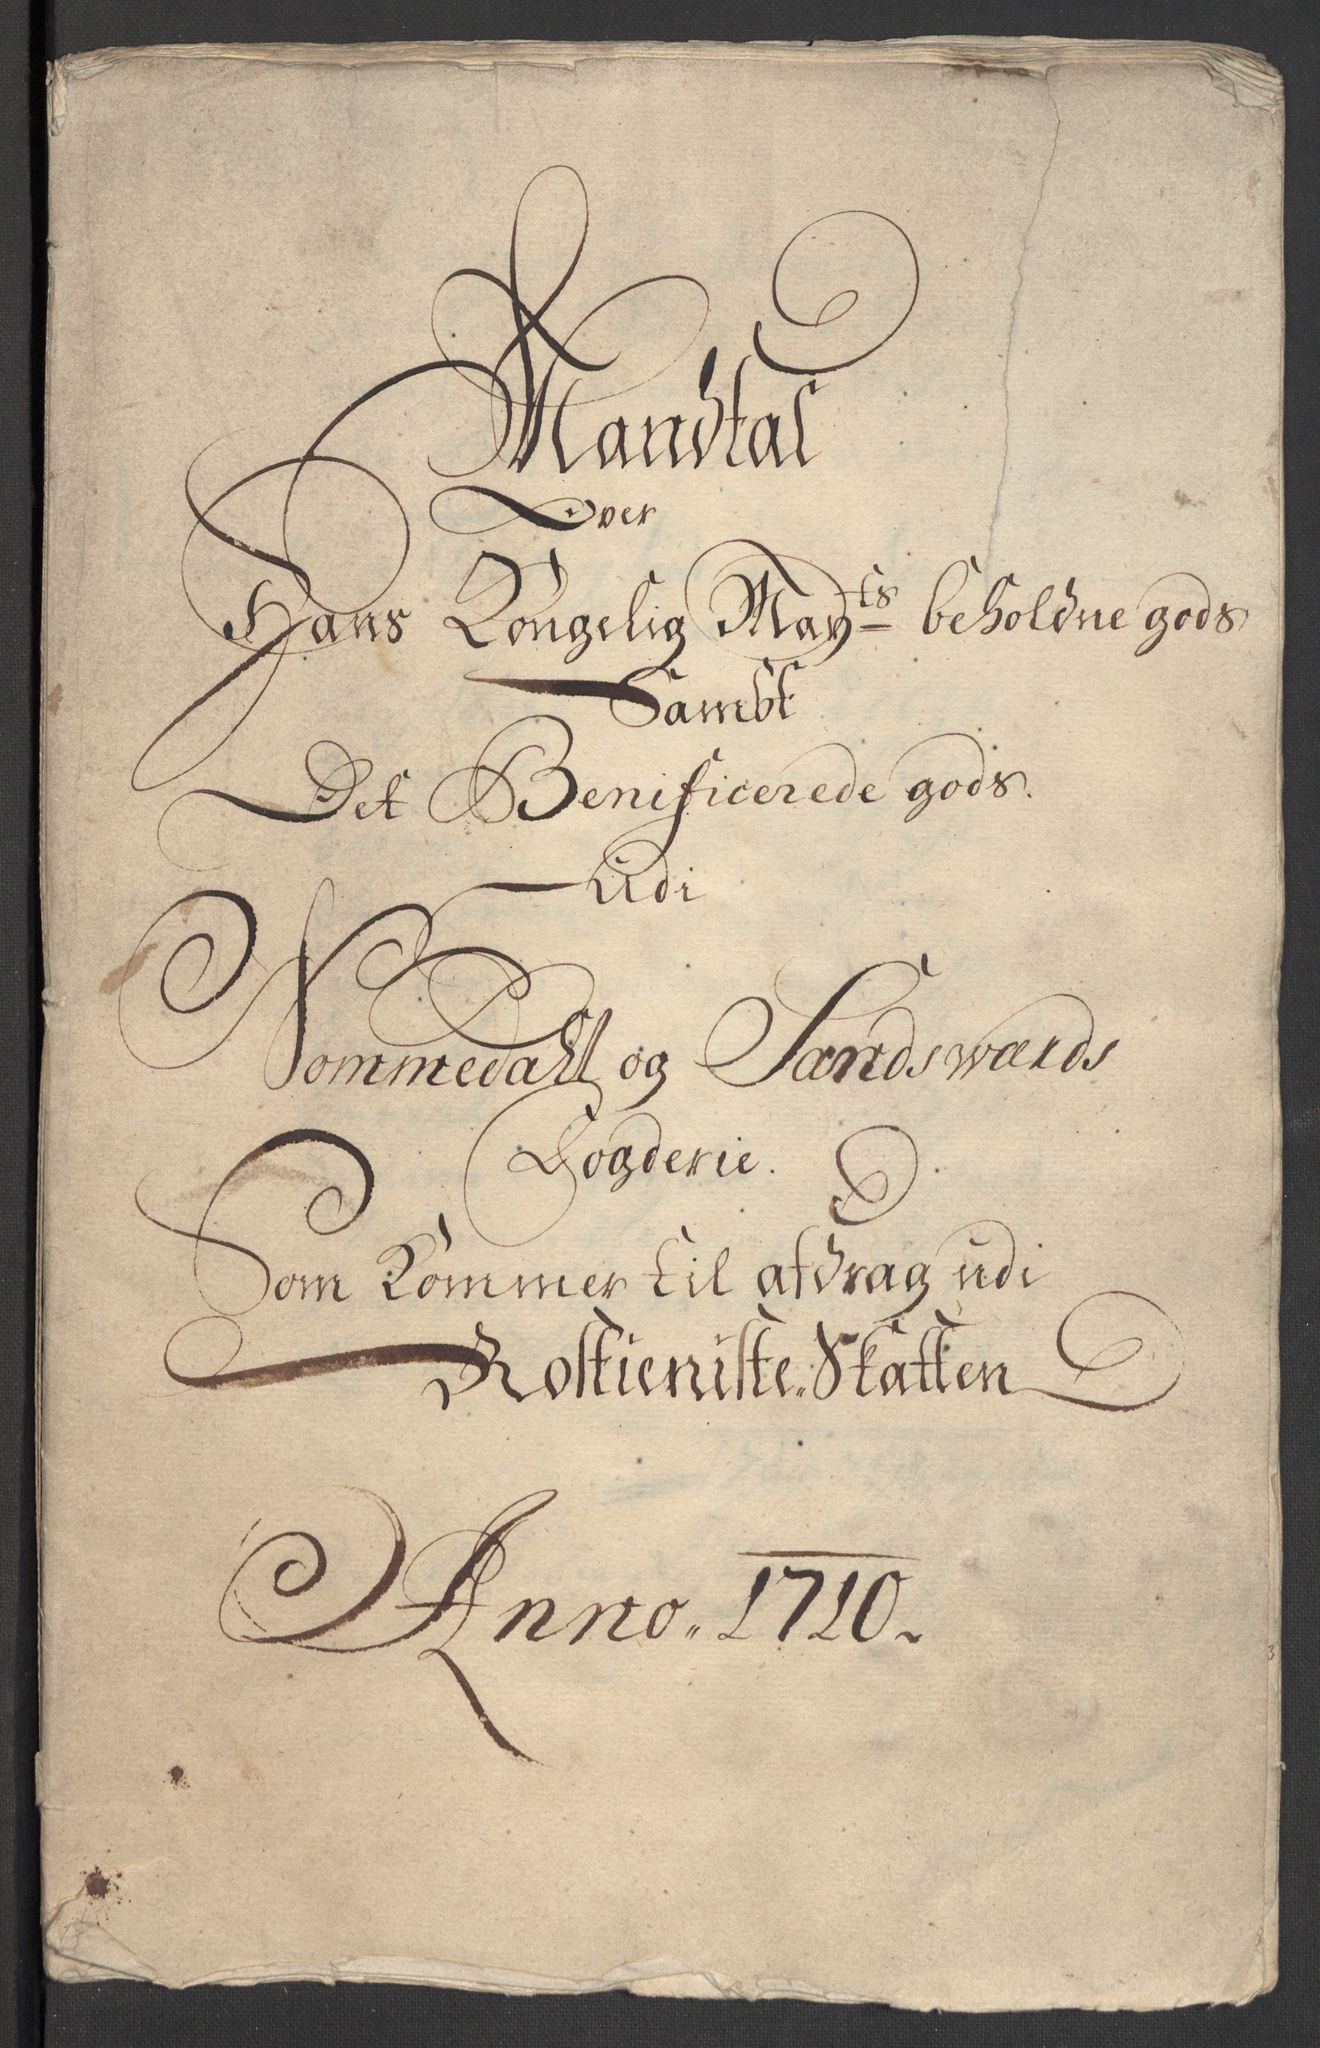 Mandtal
Over
Hans Kongelig Mayts beholdne gods
Sambt
Det Benificerede gods.
Udi
Nommedahl og Sandswærds
Fogderie.
Som Kommer til afdrag udi
Rostieniste Skatten
Anno 1710
3